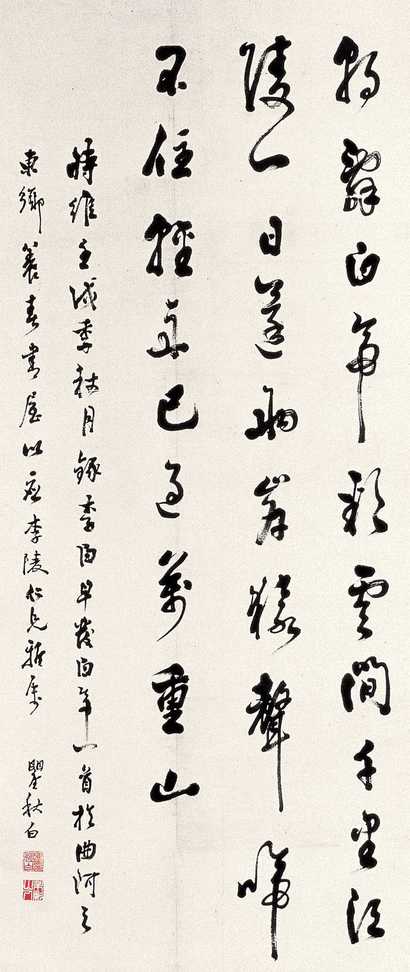 朝辭白帝彩雲間千里江
陵一日還兩岸猿聲啼
不住輕舟已過萬重山
時維壬戌季秋月錄李白早發白帝一首於曲阿之
東鄉養春書屋以應李陵仁兄雅屬
瞿秋白